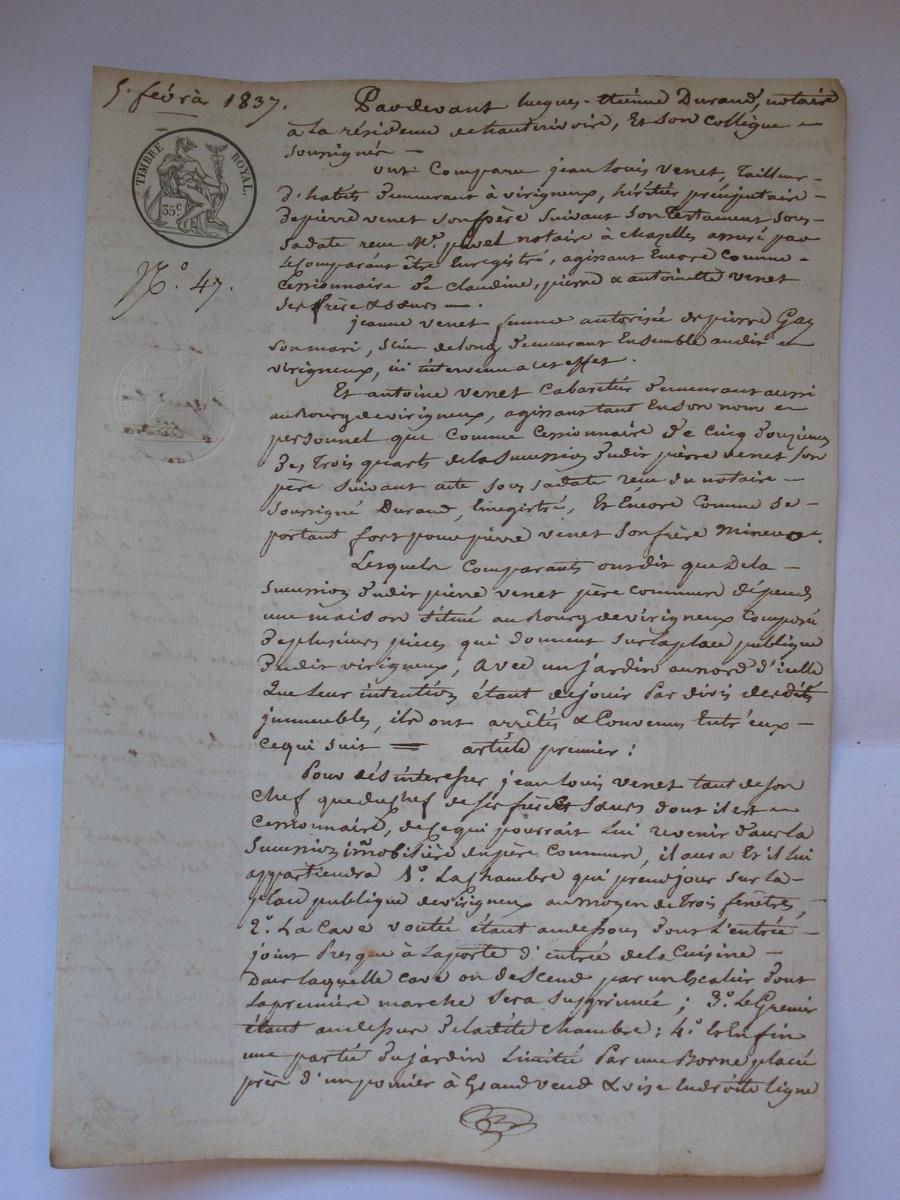 5. févriér 1837.
TIMBRE ROYAL.
35c
N.o 47.
Pardevant hugues-étienne Durand, notaire
à La résidence de hauterivoire, et Son Collègue
Soussignés
ont Comparu jean Louis Venet, Tailleur
d'habits Demeurant à virigneux, héritier préciputaire
De pierre venet Son père Suivant Son Testament Sous
Sa date reçu Me. notaire à Chazelles assuré par
Le Comparant être Enregistré, agissant Encore Comme
Cessionnaire De Claudine, pierre & antoinette venet
Ses frère & sœurs.
jeanne venet femme autorisée De pierre Gay
Son mari, Scieur de long Demeurant Ensemble audit
virigneux, ici intervenu a cet effet.
Et antoine venet Cabaretier Demeurant aussi
au Bourg de virigneux, agissant tant En Son nom
personnel que Comme Cessionnaire De Cinq Douziemes
Des Trois quarts de la Succession Dudit pierre venet Son
père Suivant acte Sous Sa date reçu Du notaire
Soussigné Durand, Enregistré, Et Encore Comme Se
portant fort pour pierre venet Son frère Mineur.
Lesquels Comparants ont dit que De la
Succession Dudit pierre venet père Commun Dépend
une maison Située au Bourg de virigneux Composée
De plusieurs pièces qui Donnent Sur la place publique
Dudit virigneux, avec un jardin au nord d'icelle
Que leur intention étant De jouir Par divis desdits
immeubles, ils ont arrêtés & Convenus Entr'eux
ce qui suit = article premier:
Pour désintéresser jean Louis venet tant de Son
Chef que du Chef de Ses frère Et Sœurs dont il est
Cessionnaire, de Ce qui pourrait Lui revenir Dans la
Succession immobilière du père Commun, il aura Et il lui
appartiendra 1.o La chambre qui prend jour Sur la
place publique de virigneux au moyen de Trois fenêtres,
2.o La Cave voutée étant au dessous Dont L'entrée
joint Presque à La porte d'entrée de la Cuisine
Dans laquelle cave on descend par un Escalier Dont
La première marche Sera Supprimée; 3.o Le Grenier
étant au dessus De la dite Chambre: 4.o Et Enfin
une partie Du jardin Limitée Par une Borne placée
près d'un pomier à Grand vend & vise En droite ligne